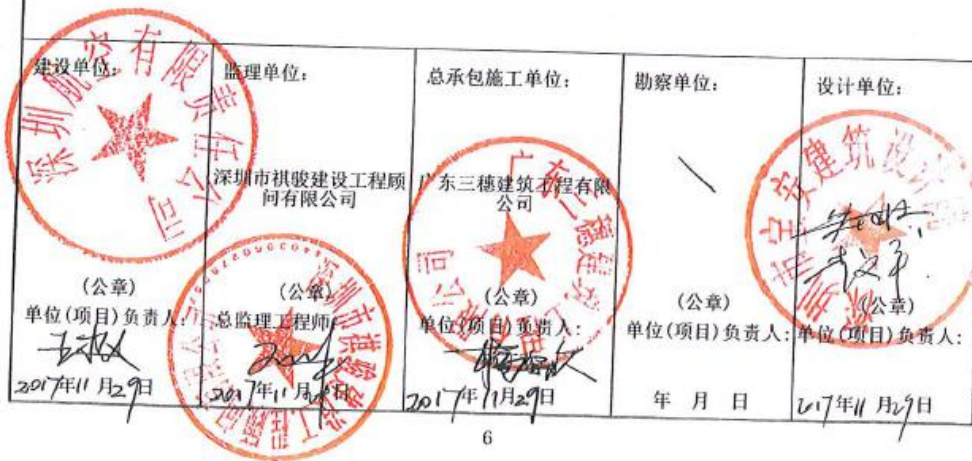 建设单位:
监理单位:
总承包施工单位:
勘察单位:
设计单位:
深圳航空有限责任公司
深圳市祺骏建设工程顾
问有限公司
广东三穗建筑工程有限
公司
(公章)
单位(项目)负责人:
2017年11月29日
(公章)
总监理工程师
2017年11月29日
(公章)
单位(项目)负责人:
2017年11月29日
(公章)
单位(项目)负责人:
年 月 日
(公章)
单位(项目)负责人:
2017年11月29日
6